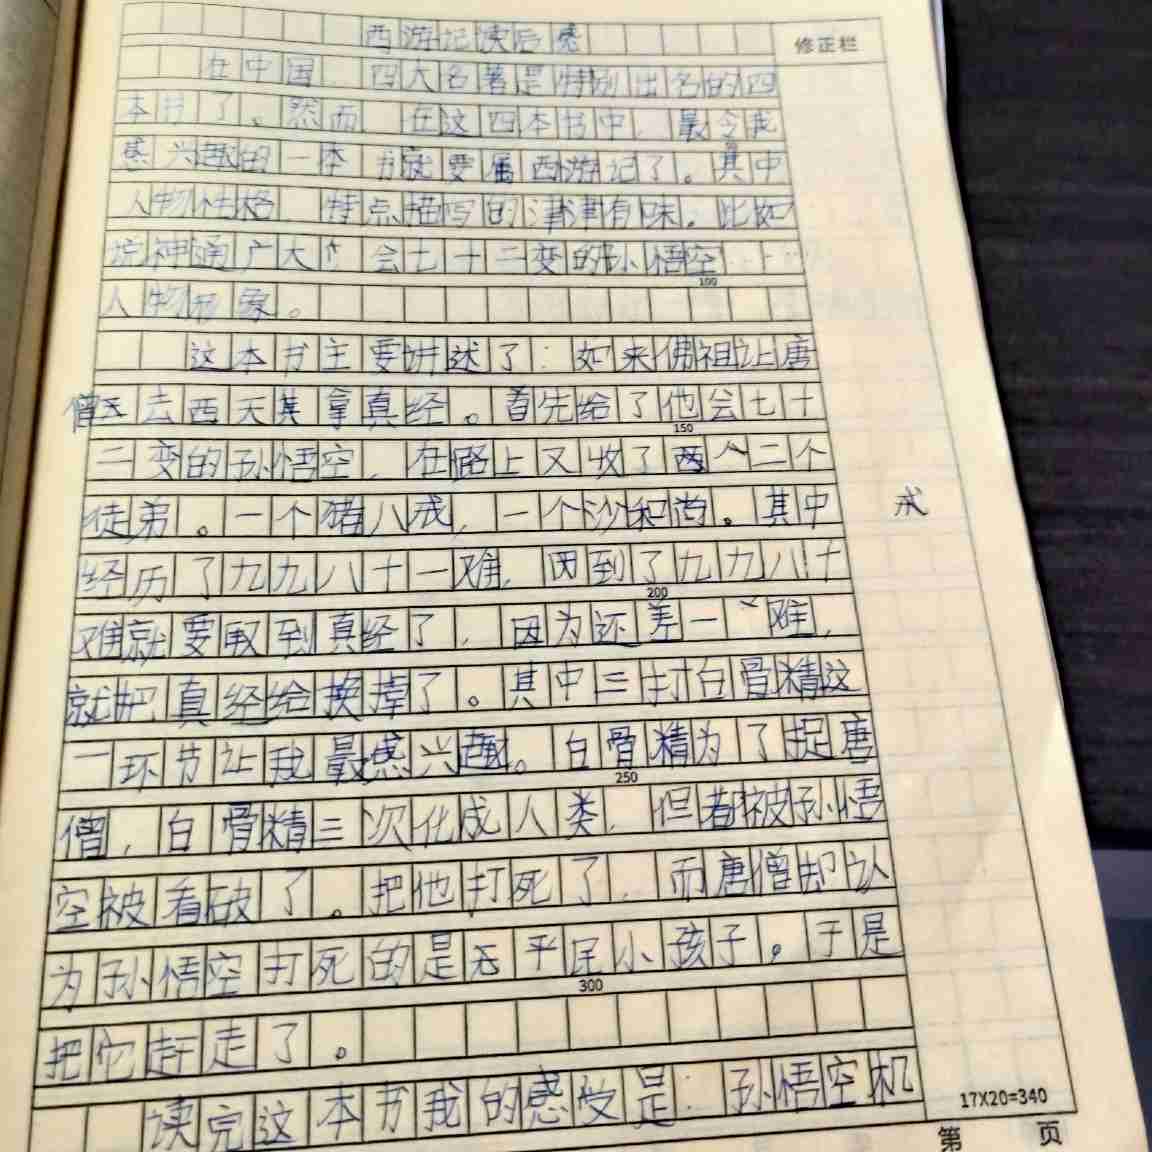 西游记读后感
修正栏
在中国，四大名著是特别出名的四
本书了。然而，在这四本书中，最令我
感兴趣的一本书就要属西游记了。其中
人物性格、特点描写的津津有味。比如
神通广大、会七十二变的孙悟空……
100
人物形象。
这本书主要讲述了：如来佛祖让唐
僧去西天其拿真经。首先给了他会七十
150
二变的孙悟空，在路上又收了两个二个
徒弟。一个猪八戒，一个沙和尚。其中
戒
经历了九九八十一难，因到了九九八十
200
难就要取到真经了，因为还差一难，
就把真经给换掉了。其中三打白骨精这
一环节让我最感兴趣。白骨精为了捉唐
250
僧，白骨精三次化成人类，但都被孙悟
空被看破了。把他打死了，而唐僧却认
为孙悟空打死的是无平民小孩子。于是
300
把它赶走了。
读完这本书我的感受是：孙悟空机
17X20=340
第 页